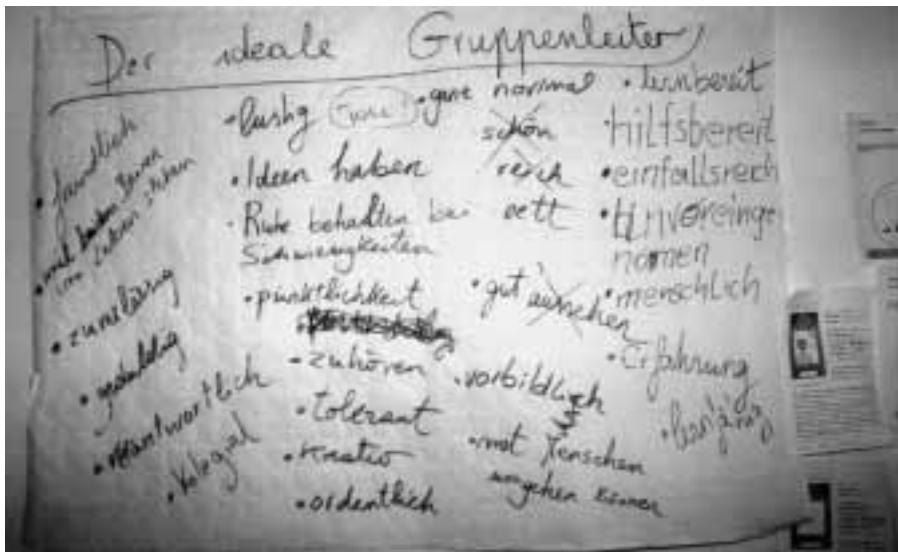 Der ideale Gruppenleiter
• freundlich
• mit beiden Beinen
im Leben stehen
• zuverlässig
• geduldig
• verantwortlich
• Kollegial
• lustig
• Ideen haben
• Ruhe behalten bei
Schwierigkeiten
• pünktlichkeit
• zuhören
• tolerant
• kreativ
• ordentlich
• ganz normal
schön
reich
nett
• gut aussehen
• vorbildlich
• mit Menschen
umgehen können
• lernbereit
• hilfsbereit
• einfallsreich
• Unvoreinge
nomen
• menschlich
• Erfahrung